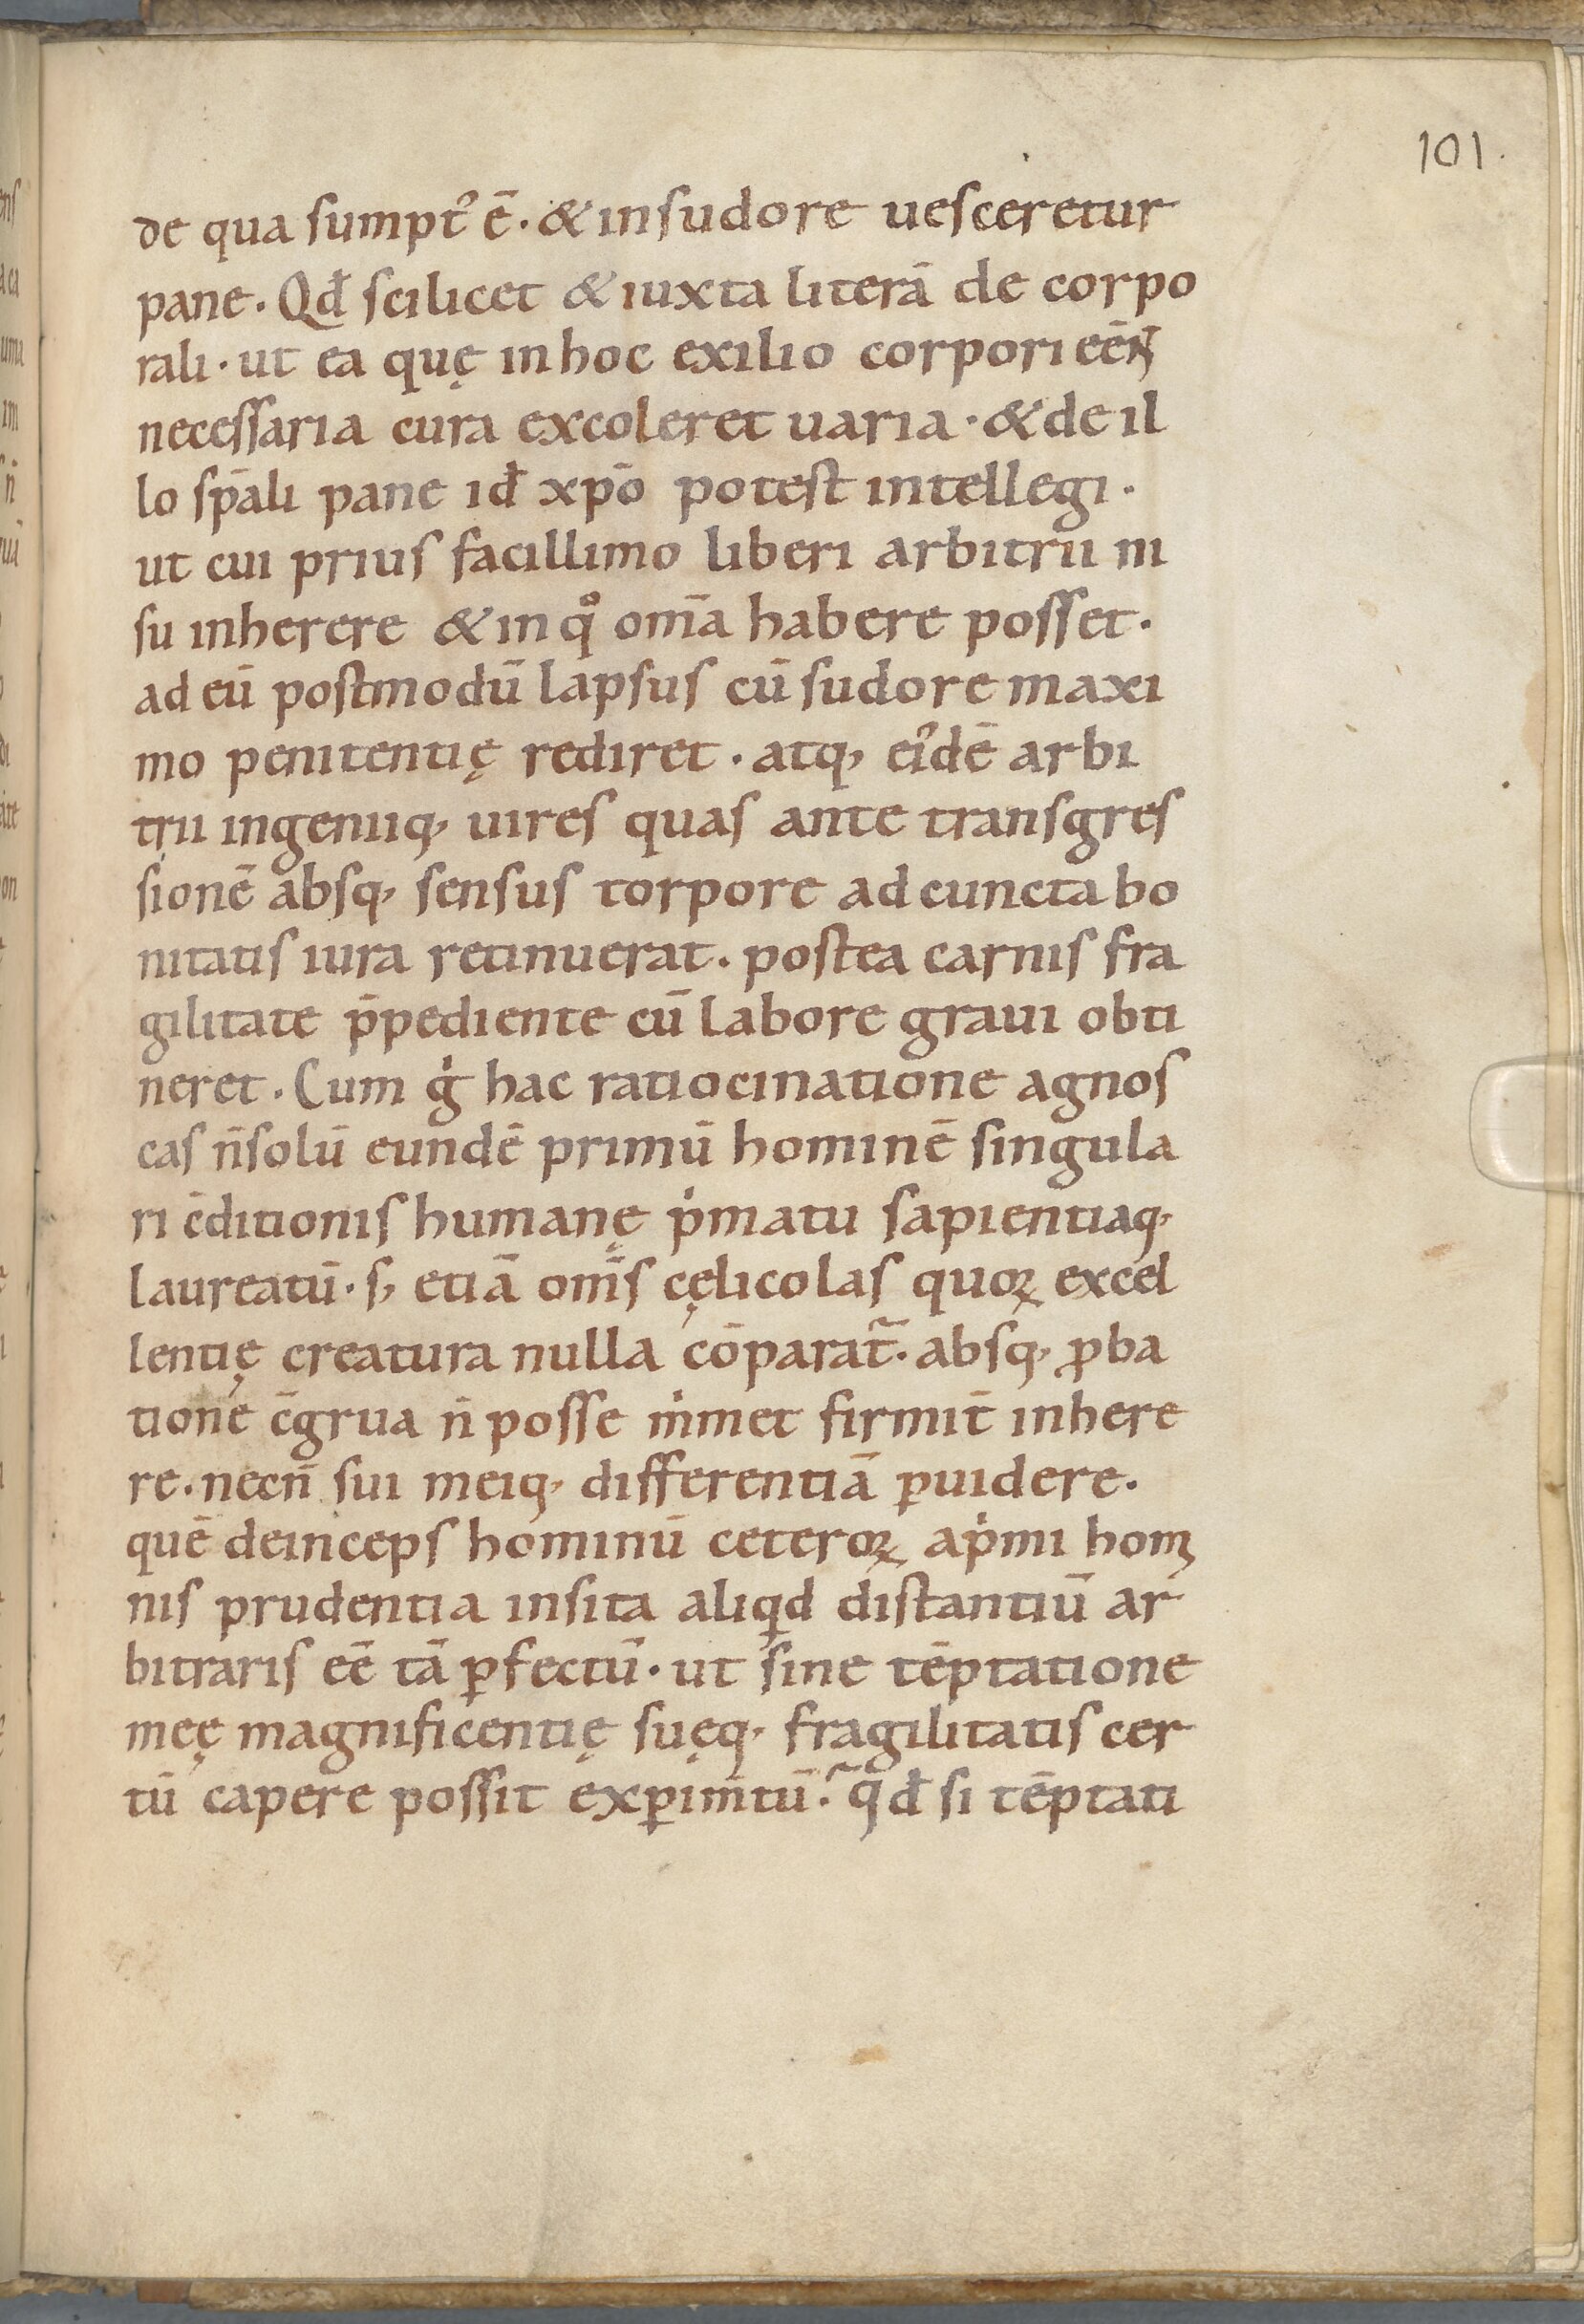 101.
de qua sumptꝰ ē. & in sudore uesceretur
pane. Qđ scilicet & iuxta literā de corpo
rali. ut ea quę in hoc exilio corpori eēnt
necessaria cura excoleret uaria. & de il
lo spāli pane id̄ xp̄o potest intellegi.
ut cui prius facillimo liberi arbitrii ni
su inherere & in qͦ om̄a habere posset.
ad eū postmodū lapsus cū sudore maxi
mo penitentię rediret. atq, eiꝰdē arbi
trii ingeniiq, uires quas ante transgres
sionē absq, sensus torpore ad cuncta bo
nitatis iura retinuerat. postea carnis fra
gilitate p̄pediente cū labore graui obti
neret. Cum gͥ hac ratiocinatione agnos
cas n̄ solū eundē primū hominē singula
ri c̄ditionis humanę pͥmatu sapientiaq,
laureatū. s, etiā om̄s cęlicolas quoꝝ excel
lentię creatura nulla cōparat᷑. absq, ꝓba
tione c̄grua n̄ posse mͥmet firmit̄ inhere
re. necn̄ sui meiq, differentiā ꝓuidere.
quē deinceps hominū ceteroꝝ a pͥmi homi
nis prudentia insita aliqͥd distantiū ar
bitraris eē tā ꝑfectū. ut sine tēptatione
meę magnificentię suęq, fragilitatis cer
tū capere possit exꝑim̄tū? qđ si tēptati